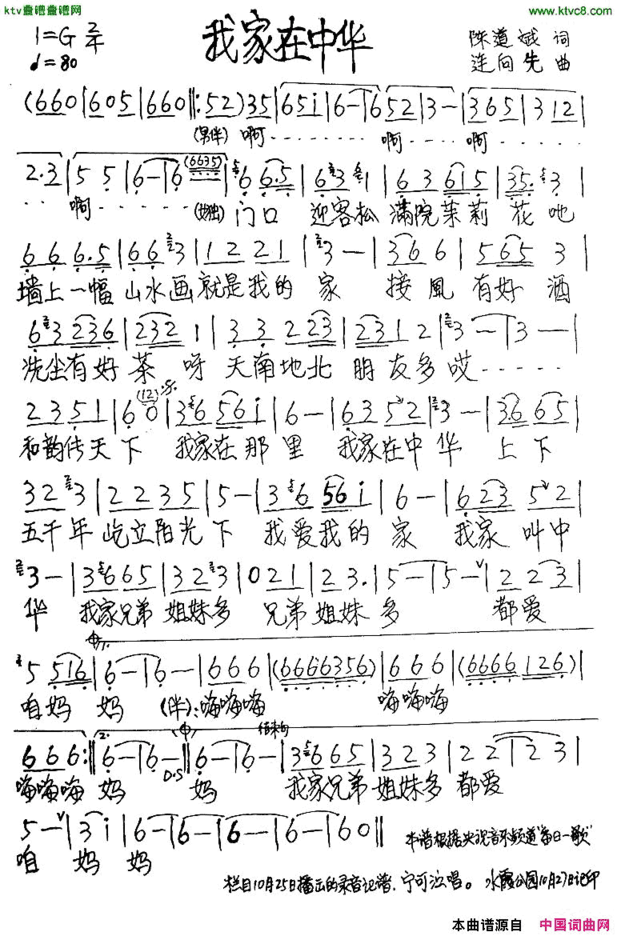 ktv盘谱盘谱网
www.ktvc8.com
我家在中华
1=G 2/4
♩=80
陈道斌 词
连向先 曲
(660|605|660‖:52)35|65i|6-|652|3-|365|312|
(男伴) 啊 啊 啊
2·3|55|6-|6(6635)|665|631|63615|35·3|
啊 (独) 门口 迎客松 满院茉莉 花吔
666·5|663|1221|3-|366|5653|
墙上一幅 山水画 就是我的 家 接風 有好 酒
63236|2321|33223|2312|3-|3-|
洗尘有好 茶 呀 天南地北 朋友多哎
2351|60|3656i|6-|6352|3-|3·665|
和韵传天下 我家在那里 我家在中华 上下
323|2235|5-|3656i|6-|62352|
五千年 屹立阳光下 我爱我的 家 我家 叫中
3-|3665|323|021|23·|5-|5-|223|
华 我家兄弟 姐妹多 兄弟姐妹多 都爱
5516|6-|6-|666|(6666356)|666|(6666126)|
咱妈 妈 (伴):嗨嗨嗨 嗨嗨嗨
666:‖2.6-|6-‖6-|6-|3665|323|22|23|
D.S
结束句
嗨嗨嗨 妈 妈 我家兄弟 姐妹多 都爱
5-|3i|6-|6-|6-|6-|60‖
咱 妈 妈
本谱根据央视音乐频道“每日一歌”
栏目10月25日播出的录音记谱,宁可泣唱。 水霞公园10月27日记印
本曲谱源自 中国词曲网